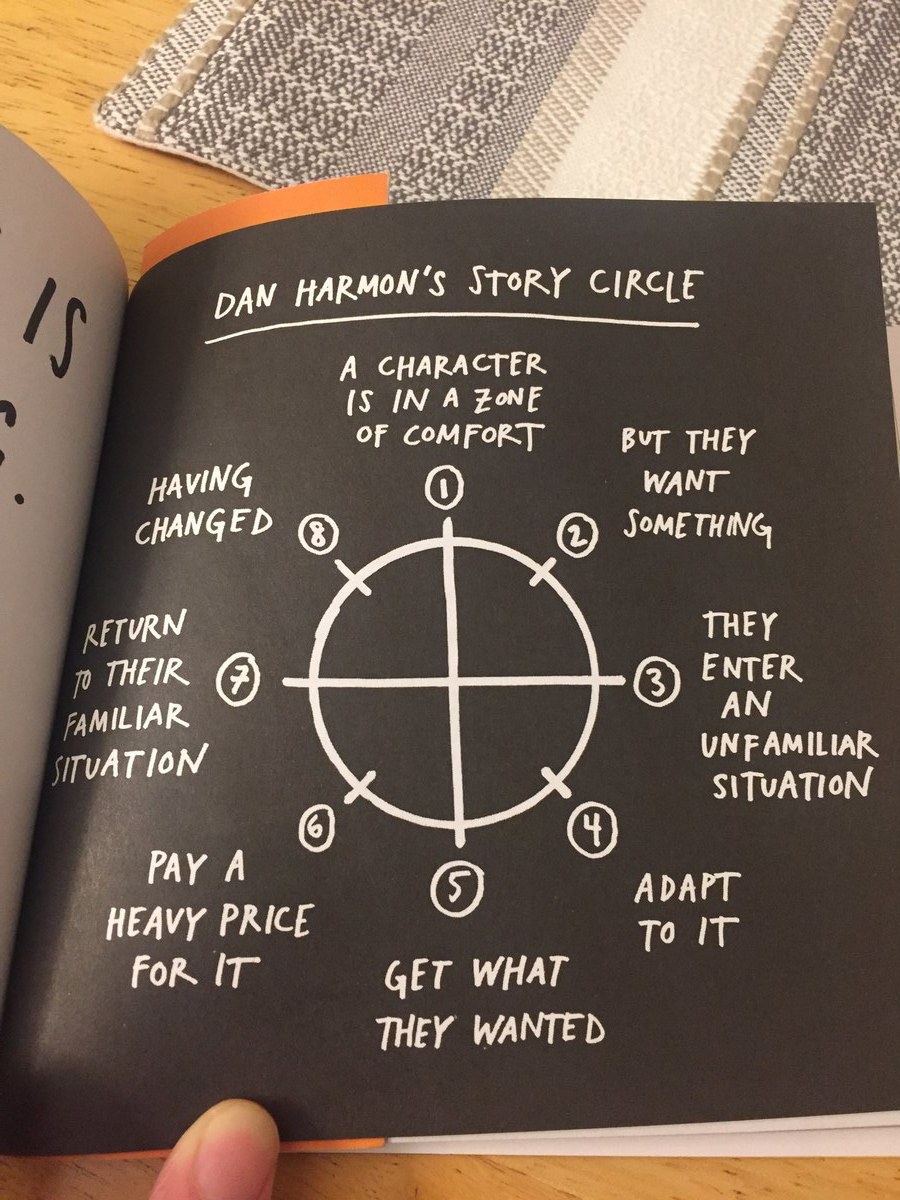 IS
DAN HARMON'S STORY CIRCLE
A CHARACTER
IS IN A ZONE
OF COMFORT
1
BUT THEY
WANT
SOMETHING
2
THEY
ENTER
AN
UNFAMILIAR
SITUATION
3
ADAPT
TO IT
4
GET WHAT
THEY WANTED
5
PAY A
HEAVY PRICE
FOR IT
6
RETURN
TO THEIR
FAMILIAR
SITUATION
7
HAVING
CHANGED
8